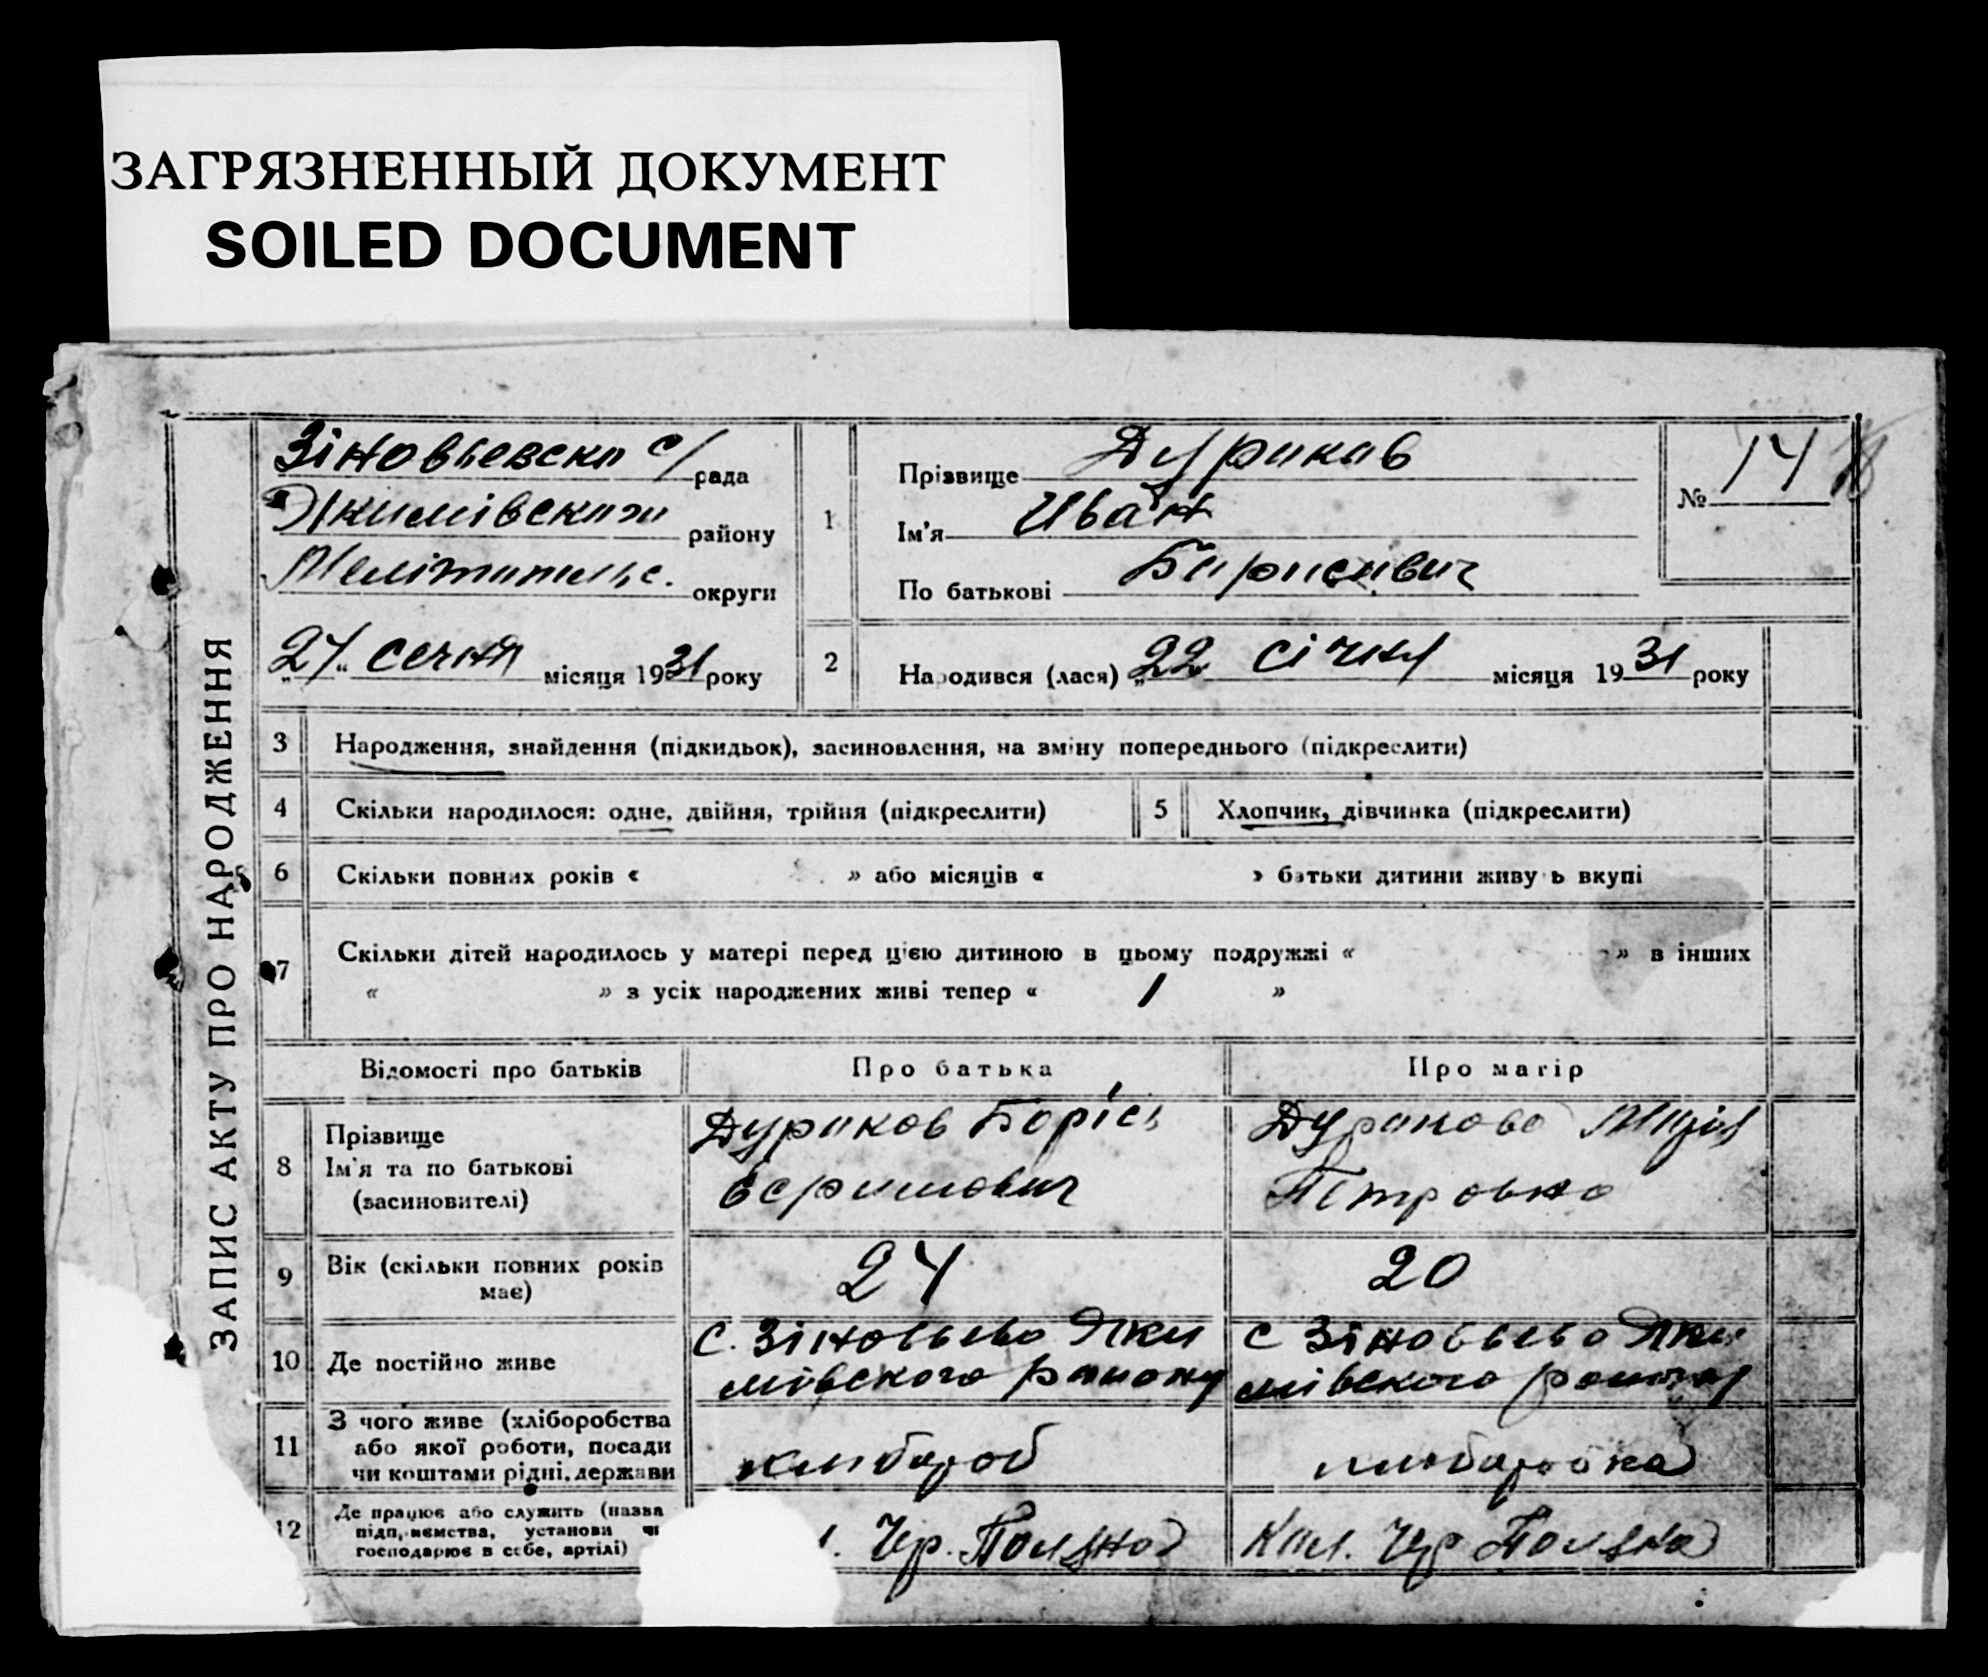 ЗАГРЯЗНЕННЫЙ ДОКУМЕНТ
SOILED DOCUMENT
ЗАПИС АКТУ ПРО НАРОДЖЕННЯ
Зіновьевска с/рада
району
округи
27 місяця 1931 року
1
Прізвище Дураков
Ім'я Иван
По батькові Барисавич
№ 14
2
Народився (лася) „22 січня місяця 1931 року
3 Народження, знайдення (підкидьок), засиновлення, на зміну попереднього (підкреслити)
4 Скільки народилося: одне, двійня, трійня (підкреслити)
5 Хлопчик, дівчинка (підкреслити)
6 Скільки повних років « » або місяців « » батьки дитини живуть вкупі
7 Скільки дітей народилось у матері перед цією дитиною в цьому подружжі « » в інших
« » з усіх народжених живі тепер « 1 »
Відомості про батьків Про батька Про матір
8
Прізвище
Ім'я та по батькові
(засиновителі)
Дураков Боріс
Дуракова Марія
Петровна
9 Вік (скільки повних років
має)
24
20
10 Де постійно живе
с. Зіновьево Яки
мівского району
с Зіновьево Яки
мівского району
11
З чого живе (хліборобства
або якої роботи, посади
чи коштами рідні, держави
12
Де працює або служить (назва
підприємства, установи чи
господарює в себе, артілі)
Чер. Поляна
Кол. Чер Поляна